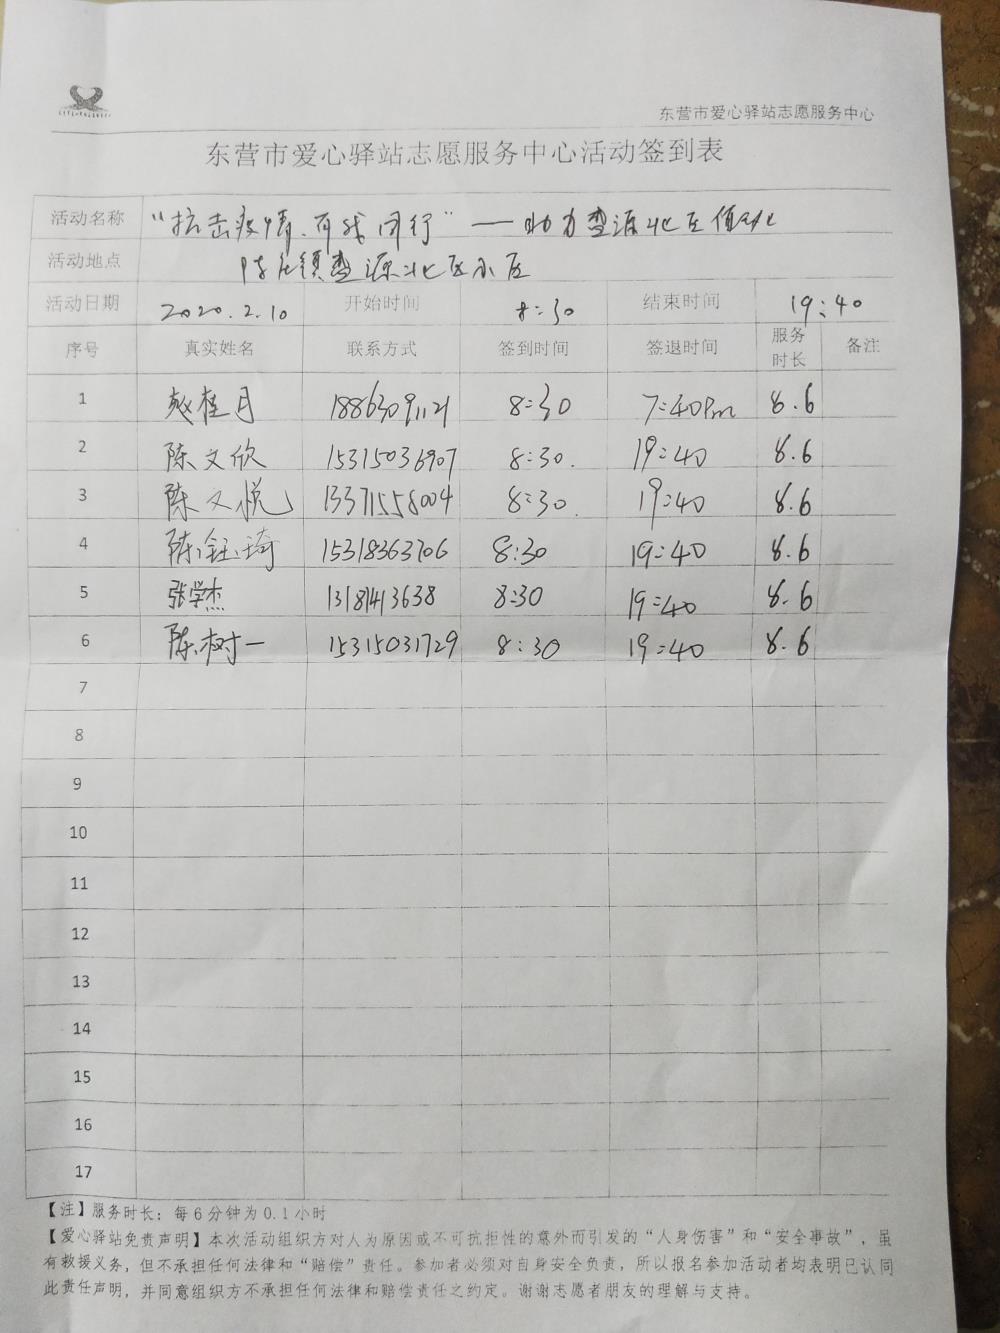 东营市爱心驿站志愿服务中心
东营市爱心驿站志愿服务中心活动签到表
活动名称 “抗击疫情.有我同行”——助力 源北区值
活动地点 陈庄镇 源北区小区
活动日期 2020.2.10 开始时间 8:30 结束时间 19:40
序号 真实姓名 联系方式 签到时间 签退时间 服务时长 备注
1 赵桂月 18863091121 8:30 7:40Pm 8.6
2 陈文欣 15315036907 8:30. 19:40 8.6
3 陈文悦 13371558004 8:30. 19:40 8.6
4 陈钰琦 15318363706 8:30 19:40 8.6
5 张学杰 13181413638 8:30 19:40 8.6
6 陈树一 15315031729 8:30 19:40 8.6
7
8
9
10
11
12
13
14
15
16
17
【注】服务时长：每6分钟为0.1小时
【爱心驿站免责声明】本次活动组织方对人为原因或不可抗拒性的意外而引发的“人身伤害”和“安全事故”，虽
有救援义务，但不承担任何法律和“赔偿”责任。参加者必须对自身安全负责，所以报名参加活动者均表明已认同
此责任声明，并同意组织方不承担任何法律和赔偿责任之约定。谢谢志愿者朋友的理解与支持。